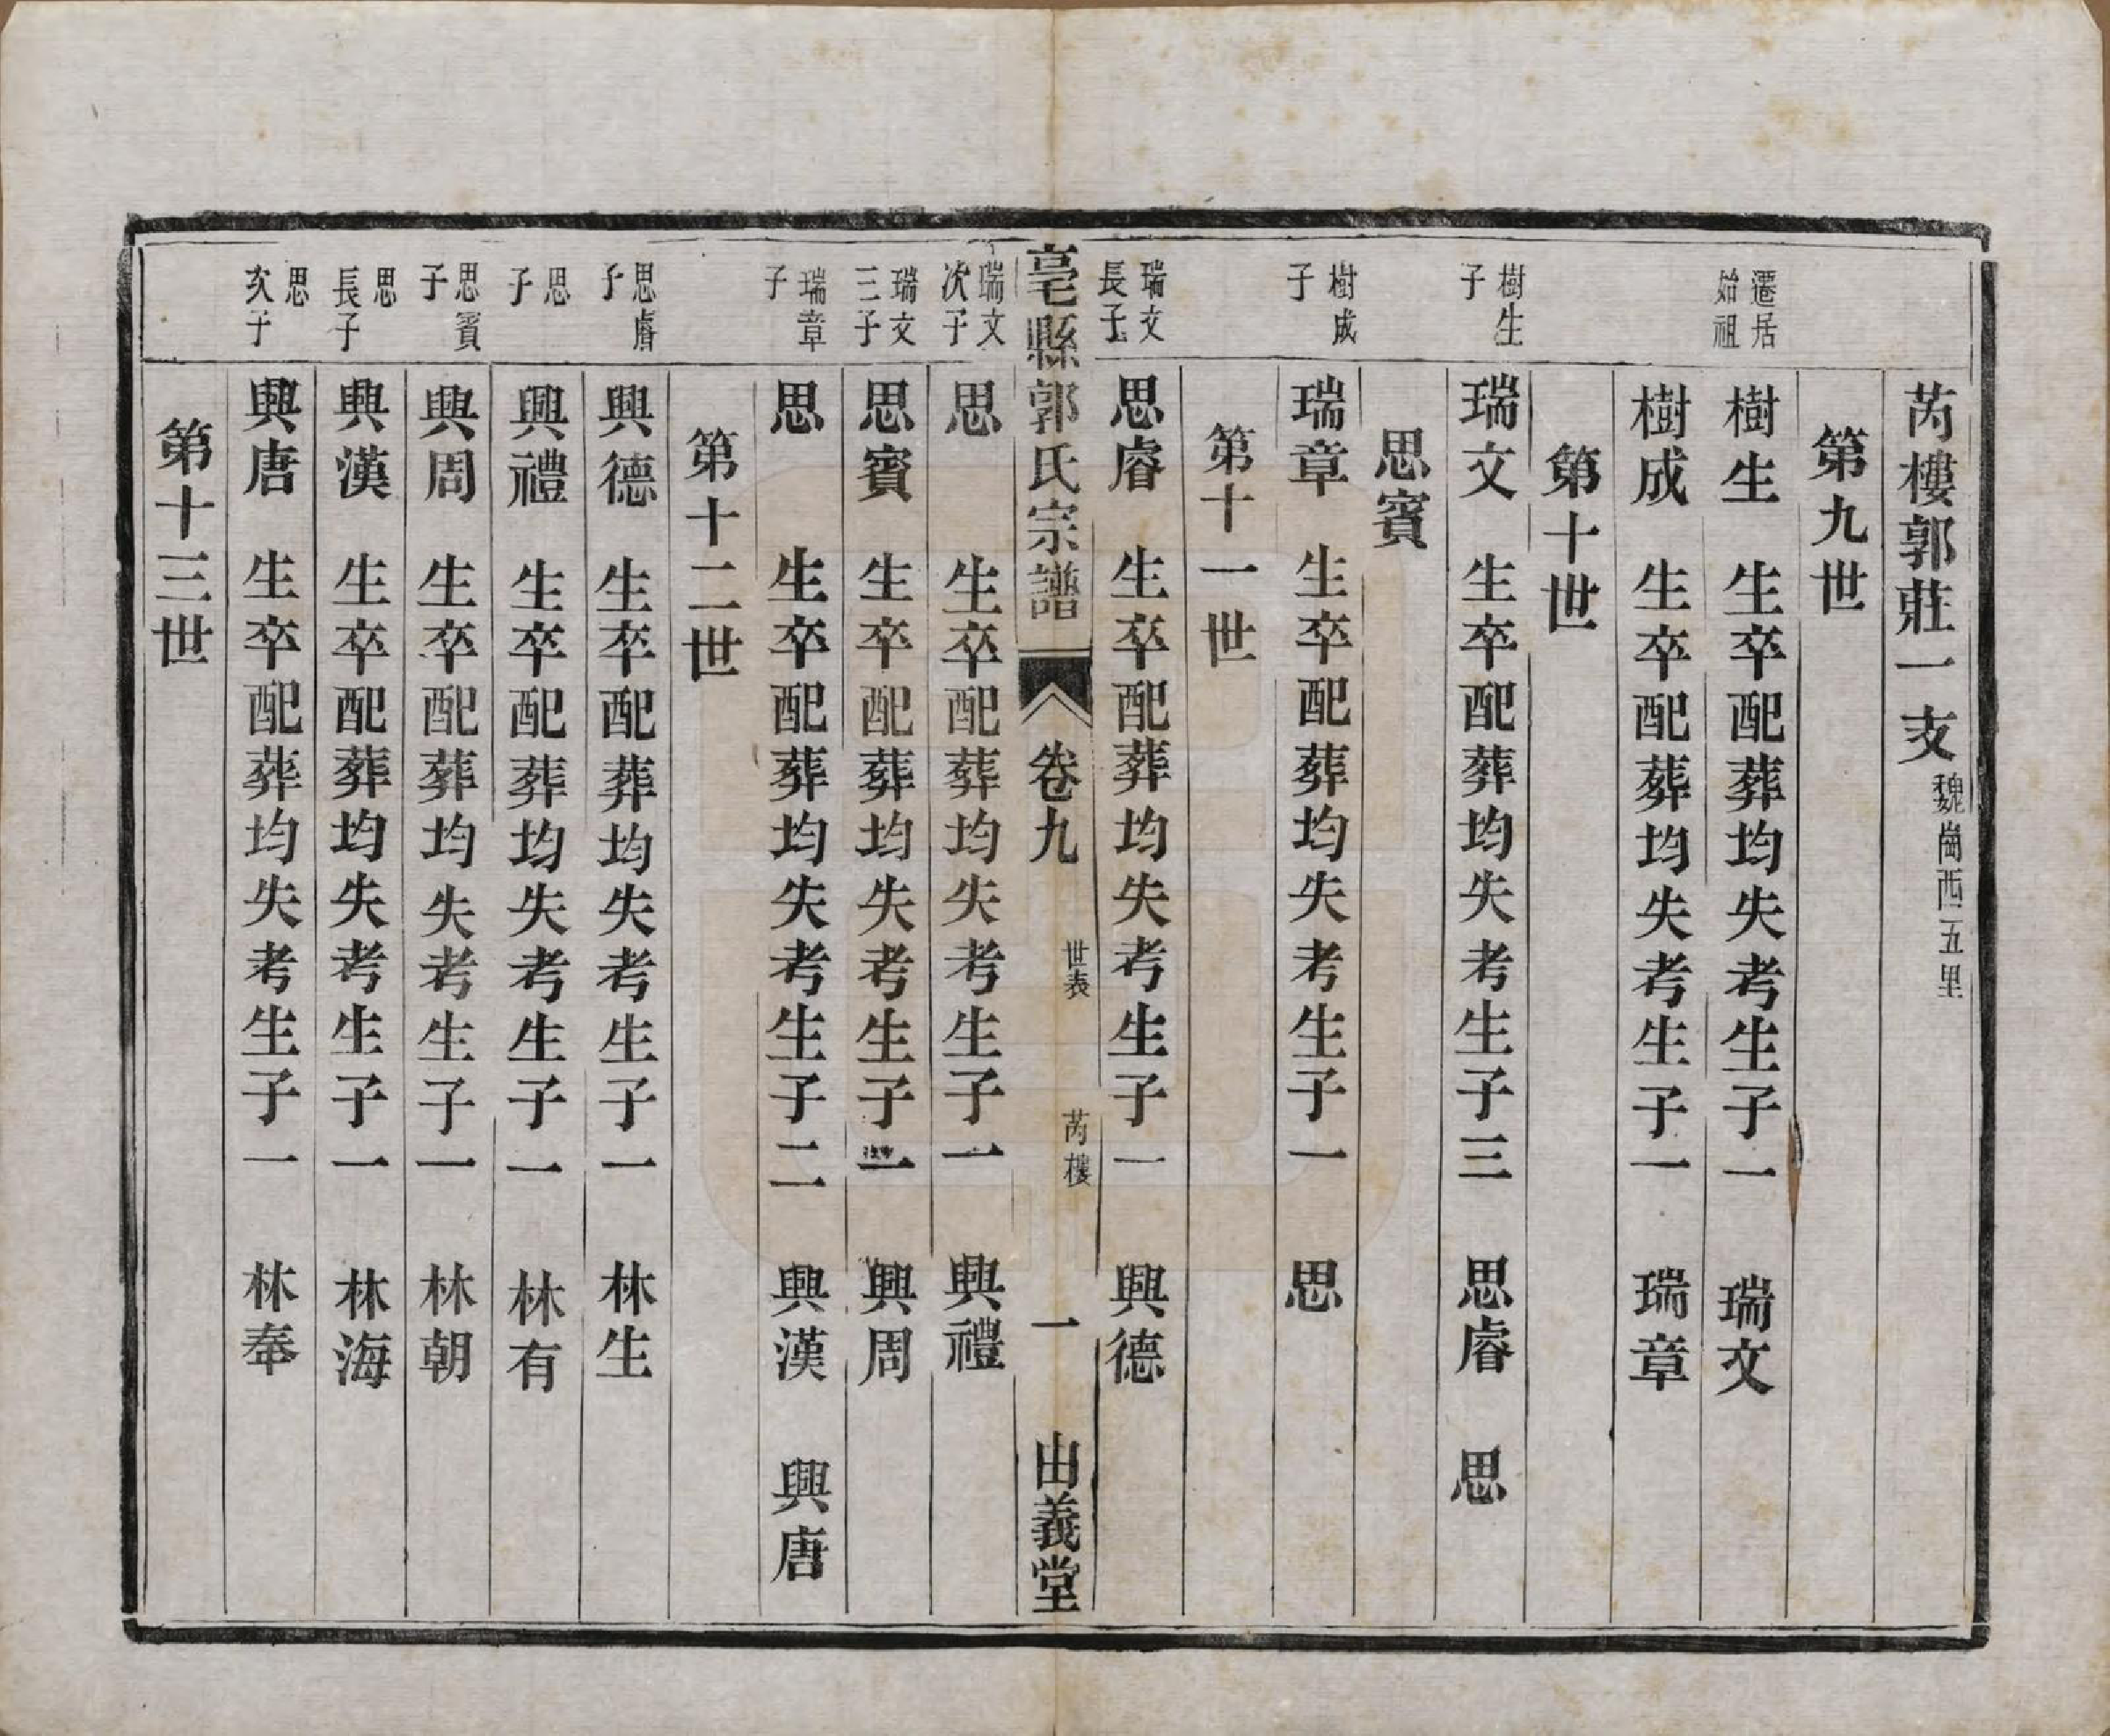 芮樓郭莊一支魏崗西五里
第九世
遷居始祖
樹生 生卒配葬均失考生子一 瑞文
樹成 生卒配葬均失考生子一 瑞章
第十世
樹生子
瑞文 生卒配葬均失考生子三 思睿 思
思賓
樹成子
瑞章 生卒配葬均失考生子一 思
第十一世
瑞文長子
思睿 生卒配葬均失考生子一 興德
亳縣郭氏宗譜 卷九 世表 芮樓 一 由義堂
瑞文次子
思 生卒配葬均失考生子一 興禮
瑞文三子
思賓 生卒配葬均失考生子一 興周
瑞章子
思 生卒配葬均失考生子二 興漢 興唐
第十二世
思睿子
興德 生卒配葬均失考生子一 林生
思子
興禮 生卒配葬均失考生子一 林有
思賓子
興周 生卒配葬均失考生子一 林朝
思長子
興漢 生卒配葬均失考生子一 林海
思次子
興唐 生卒配葬均失考生子一 林奉
第十三世